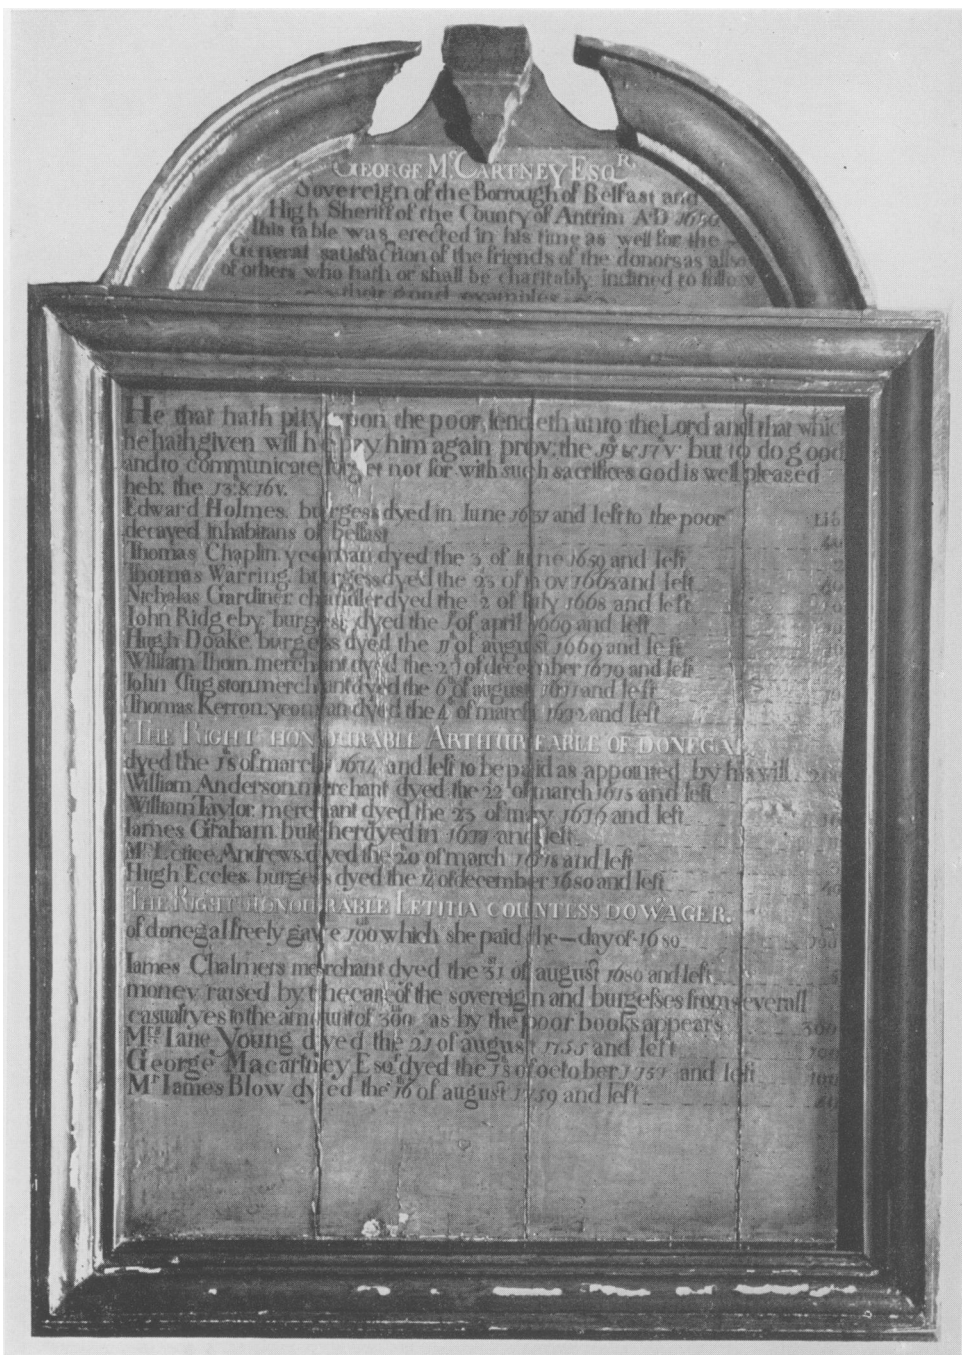 GEORGE Mc.CARTNEY ESQR.
Sovereign of the Borrough of Belfast and
High Sheriff of the County of Antrim A·D
This table was erected in his time as well for the
General satisfaction of the friends of the donors as allso
of others who hath or shall be charitably inclined to follow
their good examples
He that hath pitty upon the poor lendeth unto the Lord and that which
he hath given will he pay him again prov: the 19 & 17 v: but to do good
and to communicate forget not for with such sacrifices God is well pleased
heb: the 13: & 16 v.
Edward Holmes burgess dyed in Iune 1631 and left to the poor Lib
decayed inhabitans of belfast 40
Thomas Chaplin yeoman dyed the 3 of Iune 1659 and left
Thomas Warring burgess dyed the 23 of nov 1665 and left
Nicholas Gardiner chandler dyed the 2 of Iuly 1668 and left
Iohn Ridgeby burgess dyed the 1st of april 1669 and left
Hugh Doake burgess dyed the 11th of august 1669 and left
William Thom merchant dyed the of december 1670 and left
Iohn Clugston merchant dyed the 6th of august 1671 and left
Thomas Kerron yeoman dyed the 4th of march 1672 and left
THE RIGHT HONOURABLE ARTHUR EARLE OF DONEGAL
dyed the of march 1674 and left to be paid as appointed by his will 200
William Anderson merchant dyed the 22 of march 1675 and left
William Taylor merchant dyed the 23 of may 1676 and left
Iames Graham butcher dyed in and left
Mrs Lettice Andrews dyed the 20 of march 1678 and left
Hugh Eccles burgess dyed the 14 of december 1680 and left 40
THE RIGHT HONOURABLE LETITIA COUNTESS DOWAGER.
of donegal freely gave 100 which she paid the — day of 1680
Iames Chalmers merchant dyed the 31 of august 1680 and left
money raised by the care of the sovereign and burgesses from severall
casualtyes to the amount of 300 as by the poor books appears 300
Mrs Iane Young dyed the 21 of august 1755 and left 100
George Macartney Esqr dyed the 1st of october 1757 and left 100
Mr Iames Blow dyed the 16th of august 1759 and left 40